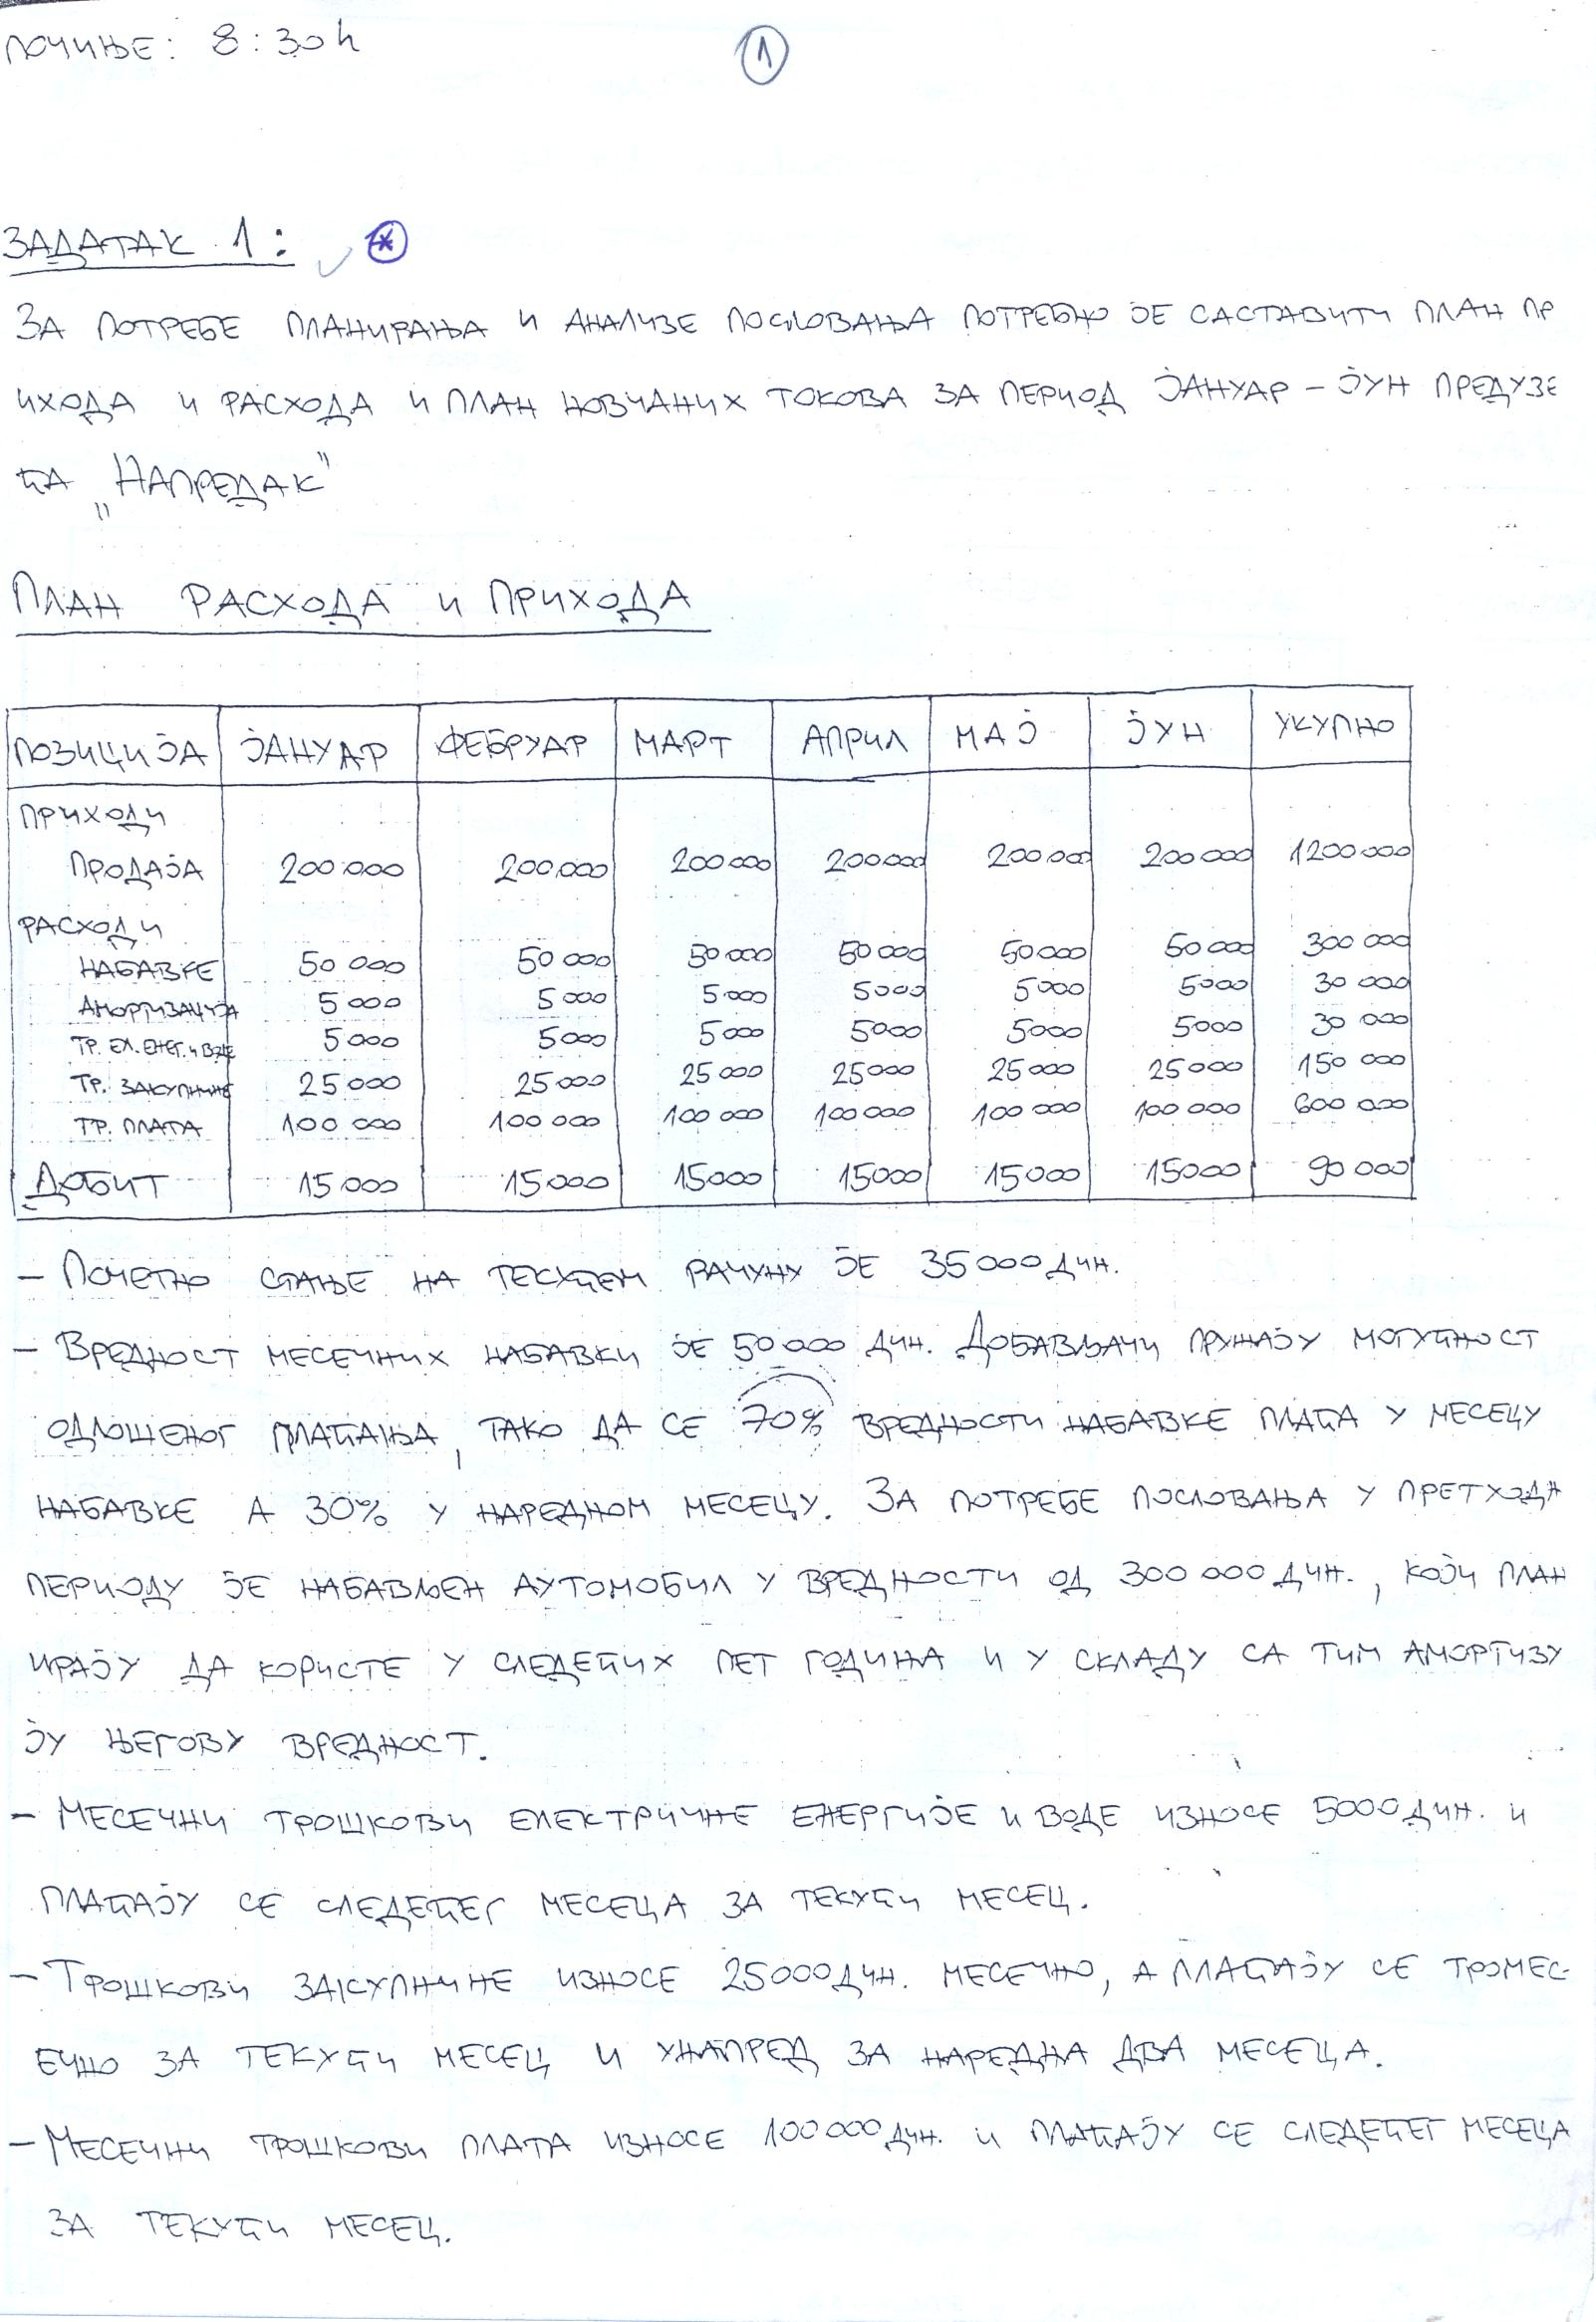 ПОЧИЊЕ: 8:30h
1
ЗАДАТАК 1:
ЗА ПОТРЕБЕ ПЛАНИРАЊА И АНАЛИЗЕ ПОСЛОВАЊА ПОТРЕБНО ЈЕ САСТАВИТИ ПЛАН ПР
ИХОДА И РАСХОДА И ПЛАН НОВЧАНИХ ТОКОВА ЗА ПЕРИОД ЈАНУАР – ЈУН ПРЕДУЗЕ
ЋА „НАПРЕДАК"
ПЛАН РАСХОДА И ПРИХОДА
ПОЗИЦИЈА ЈАНУАР ФЕБРУАР МАРТ АПРИЛ МАЈ ЈУН УКУПНО
ПРИХОДИ
ПРОДАЈА 200 000 200 000 200 000 200 000 200 000 200 000 1200 000
РАСХОДИ
НАБАВКЕ 50 000 50 000 50 000 50 000 50 000 50 000 300 000
АМОРТИЗАЦИЈА 5 000 5 000 5 000 5000 5000 5000 30 000
ТР. ЕЛ. ЕНЕГ. И ВОДЕ 5 000 5000 5 000 5000 5000 5000 30 000
ТР. ЗАКУПНИНЕ 25 000 25 000 25 000 25000 25 000 25 000 150 000
ТР. ПЛАТА 100 000 100 000 100 000 100 000 100 000 100 000 600 000
ДОБИТ 15 000 15 000 15000 15000 15 000 15000 90 000
– ПОЧЕТНО СТАЊЕ НА ТЕКУЋЕМ РАЧУНУ ЈЕ 35 000 ДИН.
– ВРЕДНОСТ МЕСЕЧНИХ НАБАВКИ ЈЕ 50 000 ДИН. ДОБАВЉАЧИ ПРУЖАЈУ МОГУЋНОСТ
ОДЛОЖЕНОГ ПЛАЋАЊА, ТАКО ДА СЕ 70% ВРЕДНОСТИ НАБАВКЕ ПЛАЋА У МЕСЕЦУ
НАБАВКЕ А 30% У НАРЕДНОМ МЕСЕЦУ. ЗА ПОТРЕБЕ ПОСЛОВАЊА У ПРЕТХОДН
ПЕРИОДУ ЈЕ НАБАВЉЕН АУТОМОБИЛ У ВРЕДНОСТИ ОД 300 000 ДИН., КОЈИ ПЛАН
ИРАЈУ ДА КОРИСТЕ У СЛЕДЕЋИХ ПЕТ ГОДИНА И У СКЛАДУ СА ТИМ АМОРТИЗУ
ЈУ ЊЕГОВУ ВРЕДНОСТ.
– МЕСЕЧНИ ТРОШКОВИ ЕЛЕКТРИЧНЕ ЕНЕРГИЈЕ И ВОДЕ ИЗНОСЕ 5000 ДИН. И
ПЛАЋАЈУ СЕ СЛЕДЕЋЕГ МЕСЕЦА ЗА ТЕКУЋИ МЕСЕЦ.
– ТРОШКОВИ ЗАКУПНИНЕ ИЗНОСЕ 25000 ДИН. МЕСЕЧНО, А ПЛАЋАЈУ СЕ ТРОМЕС-
ЕЧНО ЗА ТЕКУЋИ МЕСЕЦ И УНАПРЕД ЗА НАРЕДНА ДВА МЕСЕЦА.
– МЕСЕЧНИ ТРОШКОВИ ПЛАТА ИЗНОСЕ 100 000 ДИН. И ПЛАЋАЈУ СЕ СЛЕДЕЋЕГ МЕСЕЦА
ЗА ТЕКУЋИ МЕСЕЦ.